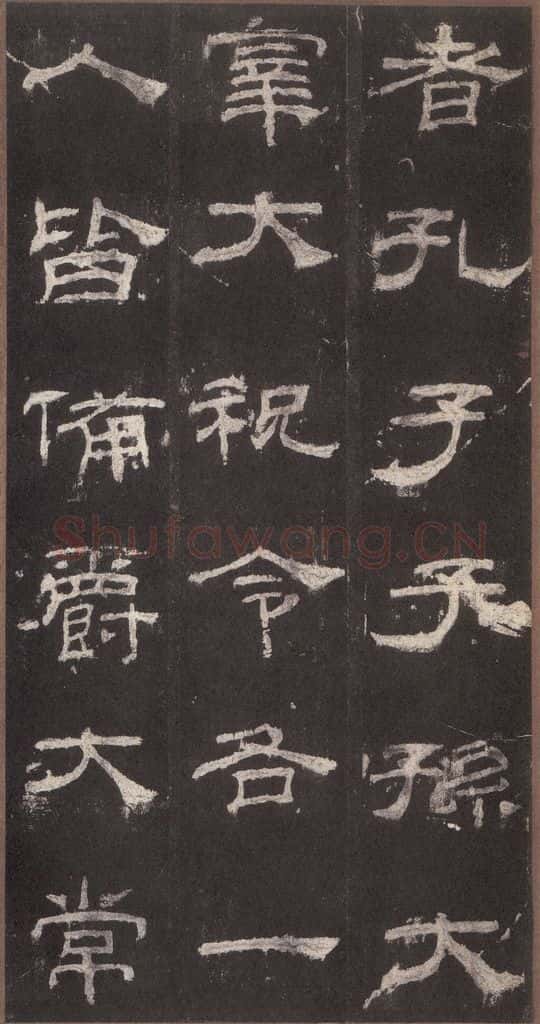 者孔子子孫大
宰大祝令各一
人皆備爵大常
Shufawang.CN